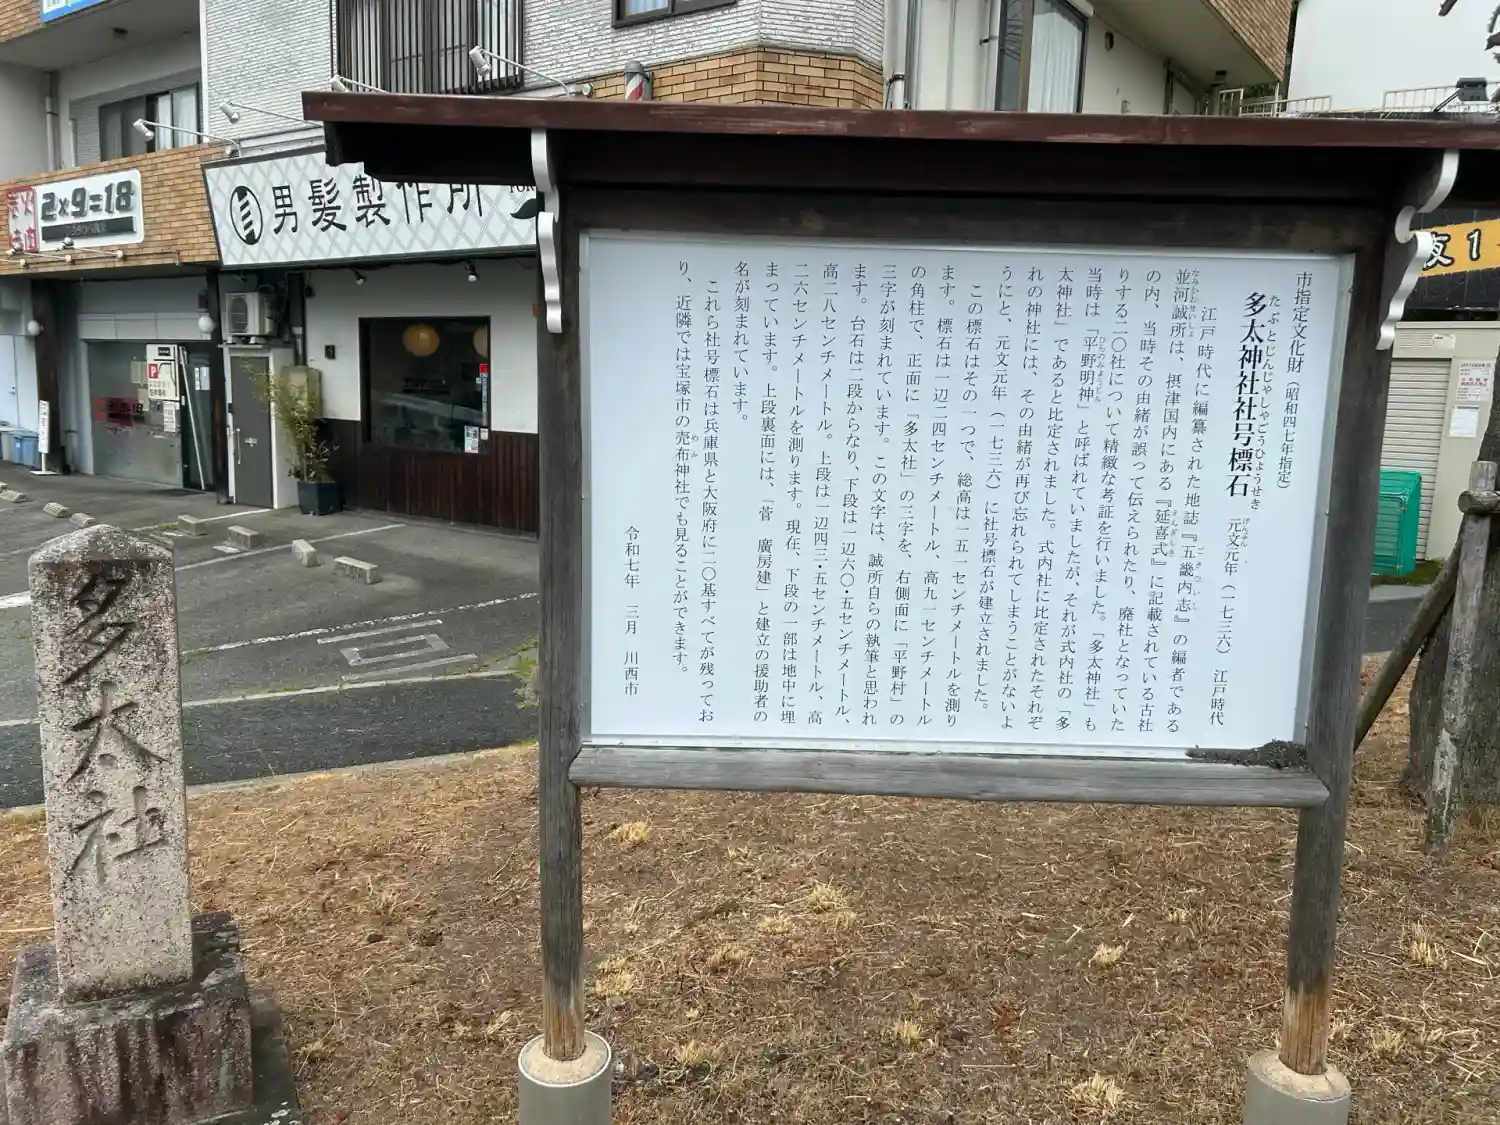 市指定文化財（昭和四七年指定）
多太神社社号標石　元文元年（一七三六）　江戸時代
たぶとじんじゃしゃごうひょうせき
げんぶん
江戸時代に編纂された地誌『五畿内志』の編者である
ごきないし
並河誠所は、摂津国内にある『延喜式』に記載されている古社
なみかわせいしょ
えんぎしき
の内、当時その由緒が誤って伝えられたり、廃社となっていた
りする二〇社について精緻な考証を行いました。「多太神社」も
当時は「平野明神」と呼ばれていましたが、それが式内社の「多
ひらのみょうじん
太神社」であると比定されました。式内社に比定されたそれぞ
れの神社には、その由緒が再び忘れられてしまうことがないよ
うにと、元文元年（一七三六）に社号標石が建立されました。
この標石はその一つで、総高は一五一センチメートルを測り
ます。標石は一辺二四センチメートル、高九一センチメートル
の角柱で、正面に「多太社」の三字を、右側面に「平野村」の
三字が刻まれています。この文字は、誠所自らの執筆と思われ
ます。台石は二段からなり、下段は一辺六〇・五センチメートル、
高二八センチメートル。上段は一辺四三・五センチメートル、高
二六センチメートルを測ります。現在、下段の一部は地中に埋
まっています。上段裏面には、「菅　廣房建」と建立の援助者の
名が刻まれています。
これら社号標石は兵庫県と大阪府に二〇基すべてが残ってお
り、近隣では宝塚市の売布神社でも見ることができます。
めふ
令和七年　三月　川西市
多太社
男髪製作所
2×9=18
夜1
P